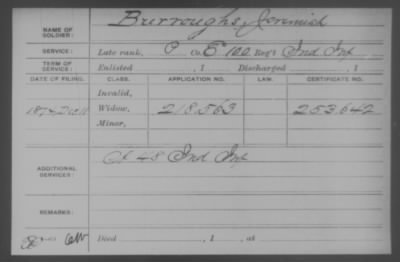 NAME OF SOLDIER: Burroughs, Jeremiah
SERVICE: Late rank, P Co. E 100 Reg't Ind Inf
TERM OF SERVICE: Enlisted , 1 Discharged , 1
DATE OF FILING. CLASS. APPLICATION NO. LAW. CERTIFICATE NO.
Invalid,
1874 Dec 11 Widow, 218.563 253.642
Minor,
ADDITIONAL SERVICES: 48 Ind Inf
REMARKS:
Died , 1 , at